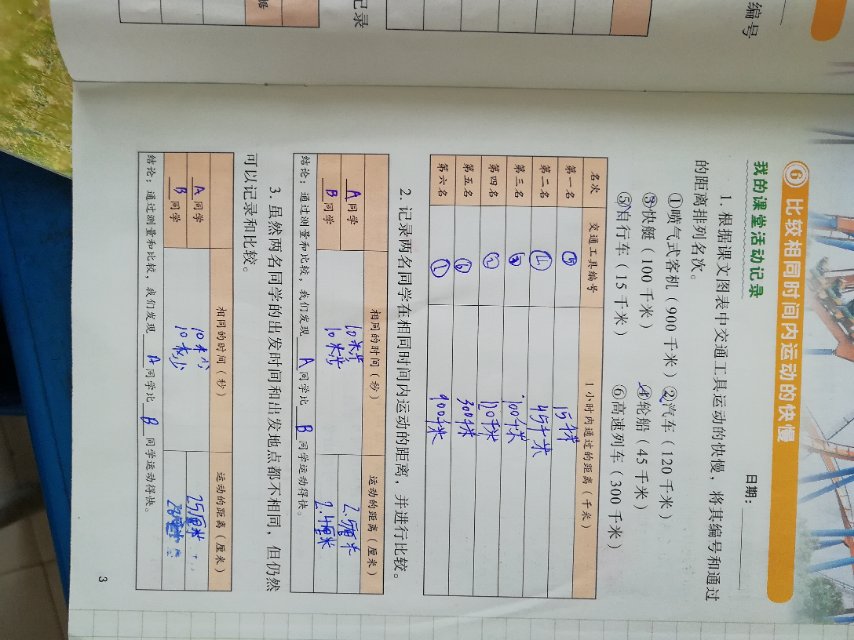 编号
⑥ 比较相同时间内运动的快慢
我的课堂活动记录
日期：
1. 根据课文图表中交通工具运动的快慢，将其编号和通过
的距离排列名次。
①喷气式客机（900 千米） ②汽车（120 千米）
③快艇（100 千米） ④轮船（45 千米）
⑤自行车（15 千米） ⑥高速列车（300 千米）
名次 交通工具编号 1 小时内通过的距离（千米）
第一名 ⑤ 15千米
第二名 ④ 45千米
第三名 ③ 100千米
第四名 ② 120千米
第五名 ⑥ 300千米
第六名 ① 900千米
2. 记录两名同学在相同时间内运动的距离，并进行比较。
相同的时间（秒） 运动的距离（厘米）
A 同学 2.5厘米
B 同学 2.4厘米
结论：通过测量和比较，我们发现 A 同学比 B 同学运动得快。
3. 虽然两名同学的出发时间和出发地点都不相同，但仍然
可以记录和比较。
相同的时间（秒） 运动的距离（厘米）
A 同学 25厘米
B 同学
结论：通过测量和比较，我们发现 A 同学比 B 同学运动得快。
3